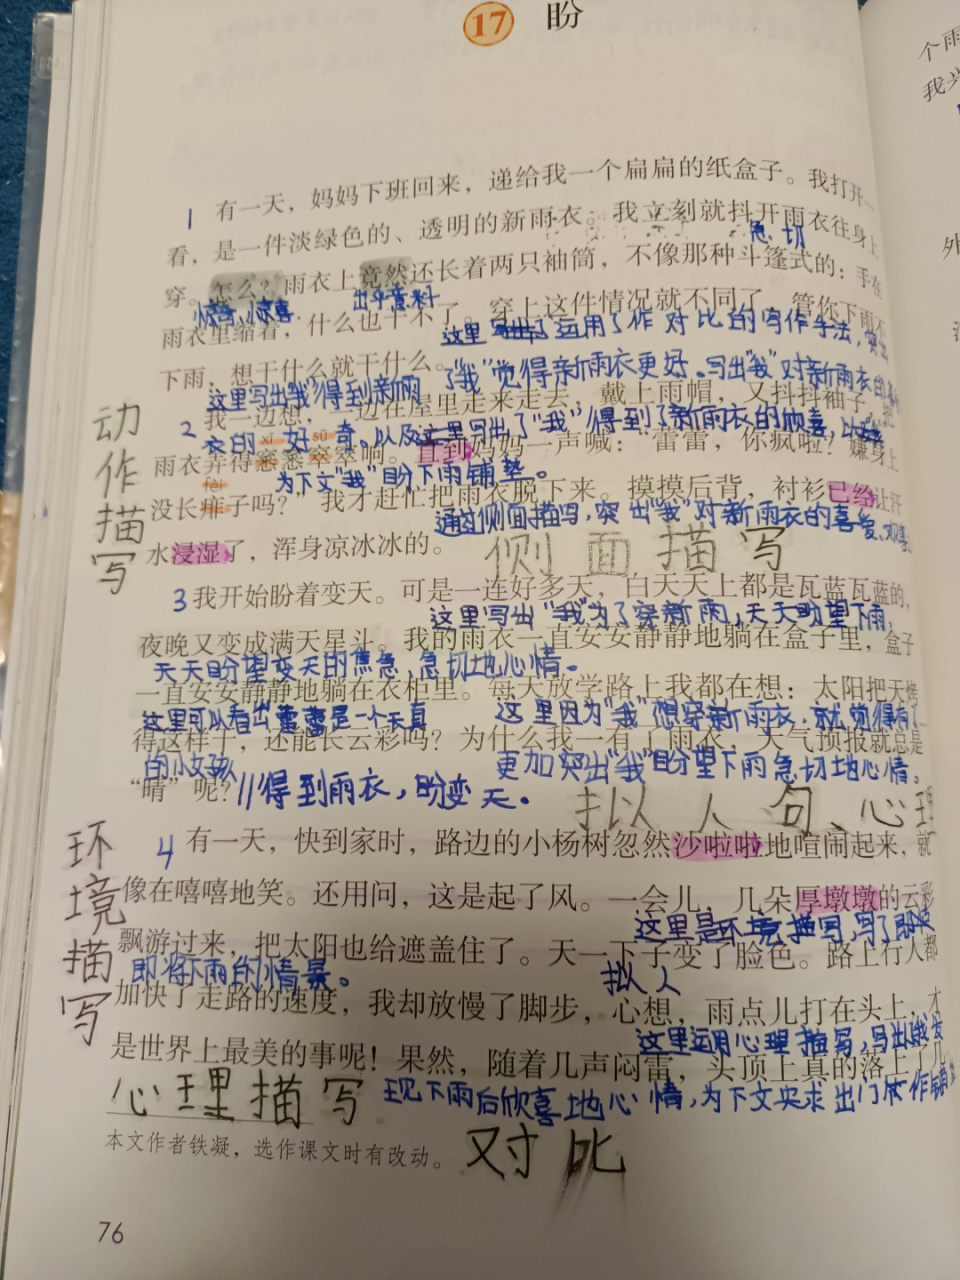 17 盼
1 有一天，妈妈下班回来，递给我一个扁扁的纸盒子。我打开一
看，是一件淡绿色的、透明的新雨衣。我立刻就抖开雨衣往身上
急切
穿。怎么？雨衣上竟然还长着两只袖筒，不像那种斗篷式的：手在
惊奇，惊喜 出乎意料
雨衣里缩着，什么也干不了。穿上这件情况就不同了，管你下雨不
这里 运用了作对比的写作手法，突出
下雨，想干什么就干什么。
这里写出"我"得到新雨 了"我"觉得新雨衣更好。写出"我"对新雨衣的
2 我一边想，一边在屋里走来走去，戴上雨帽，又抖抖袖子，把
衣的 好奇。以及这里写出了"我"得到了新雨衣的欣喜，
xī sū
雨衣弄得窸窸窣窣响。直到妈妈一声喊："雷雷，你疯啦？嫌身上
为下文"我"盼下雨铺垫。
fèi
没长痱子吗？"我才赶忙把雨衣脱下来。摸摸后背，衬衫已经让汗
通过侧面描写，突出"我"对新雨衣的喜爱、
水浸湿了，浑身凉冰冰的。
侧面描写
动作描写
3 我开始盼着变天。可是一连好多天，白天天上都是瓦蓝瓦蓝的，
这里写出"我"为了穿新雨，天天盼望下雨，
夜晚又变成满天星斗。我的雨衣一直安安静静地躺在盒子里，盒子
天天盼望变天的焦急，急切地心情。
一直安安静静地躺在衣柜里。每天放学路上我都在想：太阳把天烤
这里可以看出蕾蕾是一个天真 这里因为"我"想穿新雨衣，就觉得有了
得这样干，还能长云彩吗？为什么我一有了雨衣，天气预报就总是
的小女孩 更加突出"我"盼望下雨急切地心情。
"晴"呢？//得到雨衣，盼变天。
拟人句、心理
4 有一天，快到家时，路边的小杨树忽然沙啦啦地喧闹起来，就
像在嘻嘻地笑。还用问，这是起了风。一会儿，几朵厚墩墩的云彩
这里是环境描写，写了
飘游过来，把太阳也给遮盖住了。天一下子变了脸色。路上行人都
即将下雨的情景。 拟人
加快了走路的速度，我却放慢了脚步，心想，雨点儿打在头上，才
这里运用心理描写，写出我发
是世界上最美的事呢！果然，随着几声闷雷，头顶上真的落上了几
现下雨后欣喜地心情，为下文央求出门
环境描写
心理描写
对比
本文作者铁凝，选作课文时有改动。
76
个雨
我兴
外